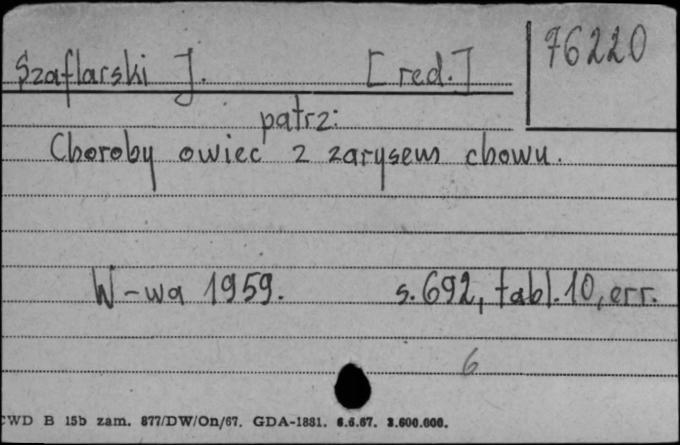 76220
Szaflarski J. [red.]
patrz:
Choroby owiec z zarysem chowu.
W-wa 1959. s. 692, tabl. 10, err.
6
CWD B 15b zam. 877/DW/On/67. GDA-1881. 6.6.67. 3.600.000.